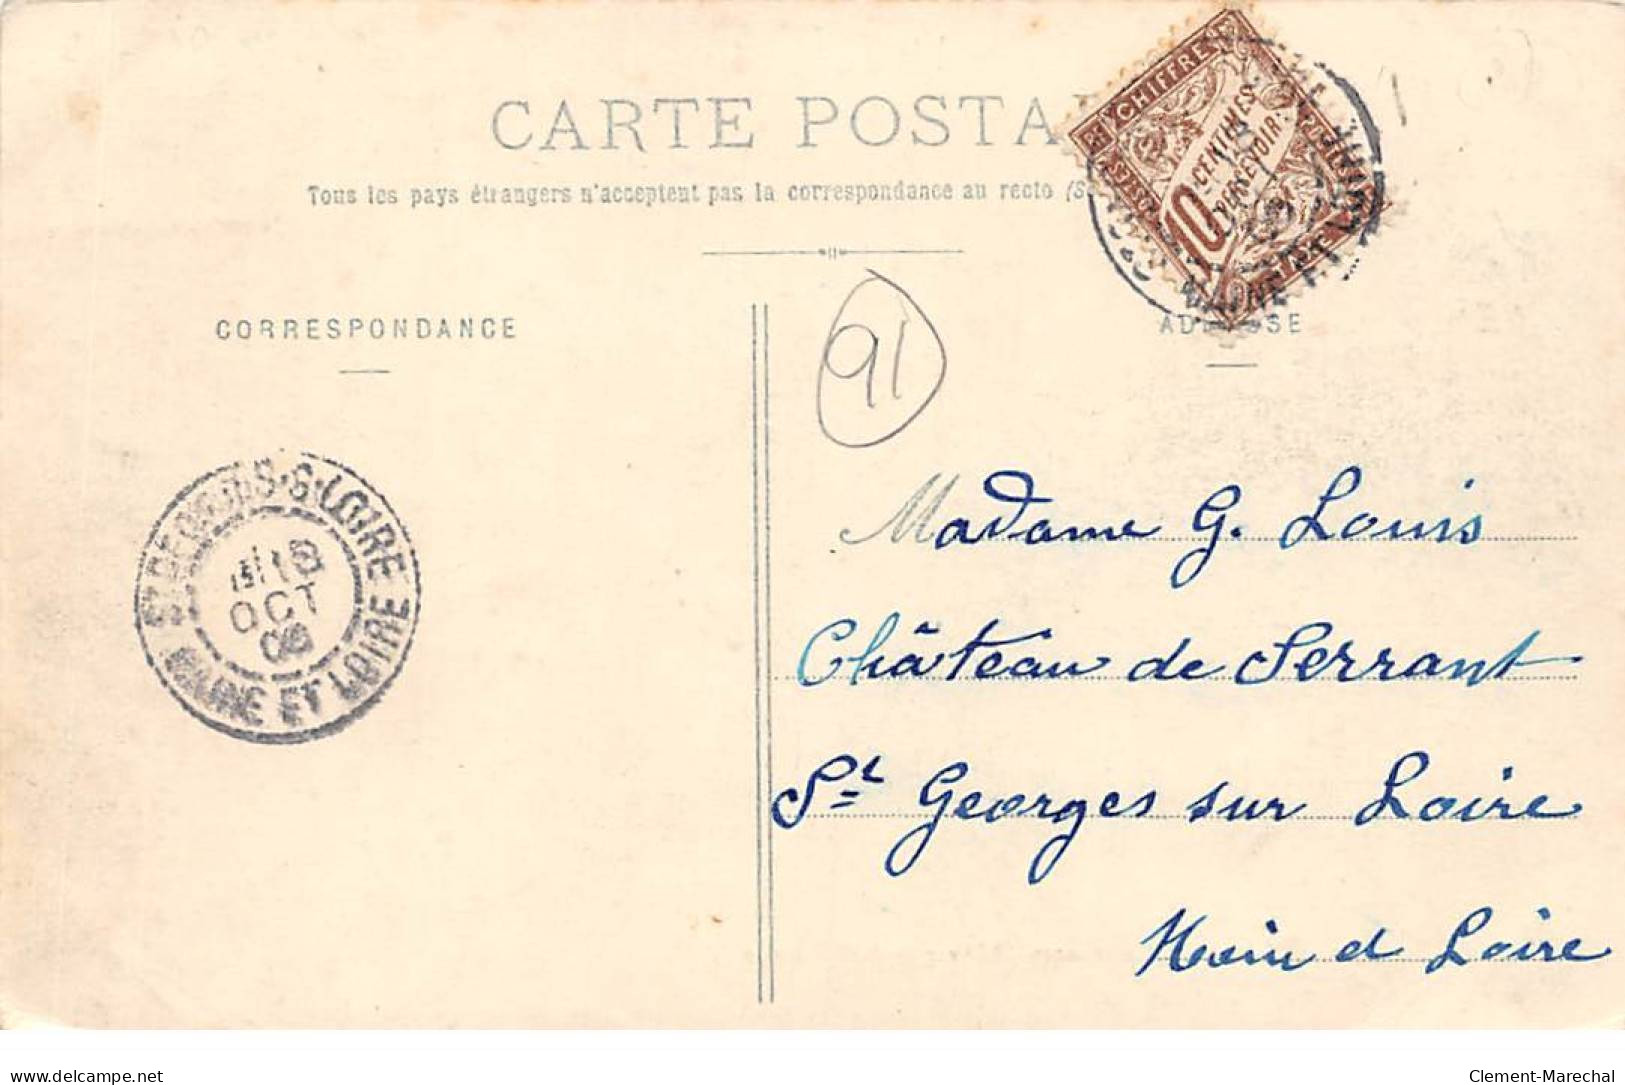 CARTE POSTA
Tous les pays étrangers n'acceptent pas la correspondance au recto (S
CHIFFRE
POSTES
10 CENTIMES
À PERCEVOIR
MAINE ET LOIRE
CORRESPONDANCE
ADRESSE
91
ST GEORGES-S-LOIRE
OCT
MAINE ET LOIRE
Madame G. Louis
Château de Serrant
St Georges sur Loire
Main et Loire
Clement-Marechal